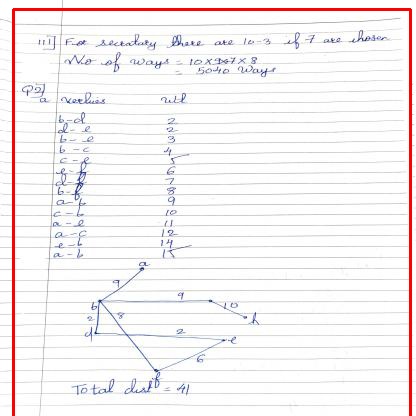 iii] For secratary there are 10-3 if 7 are chosen
No of ways = 10×9×7×8
= 5040 ways
Q2]
a vertives wtl
b-d 2
d-e 2
b-e 3
b-c 4
c-e 5
e-f 6
d-f 7
b-f 8
a-b 9
c-b 10
a-e 11
a-c 12
e-b 14
a-b 15
a
9
b 9 10
2 8 h
d 2 e
6
f
Total dist = 41